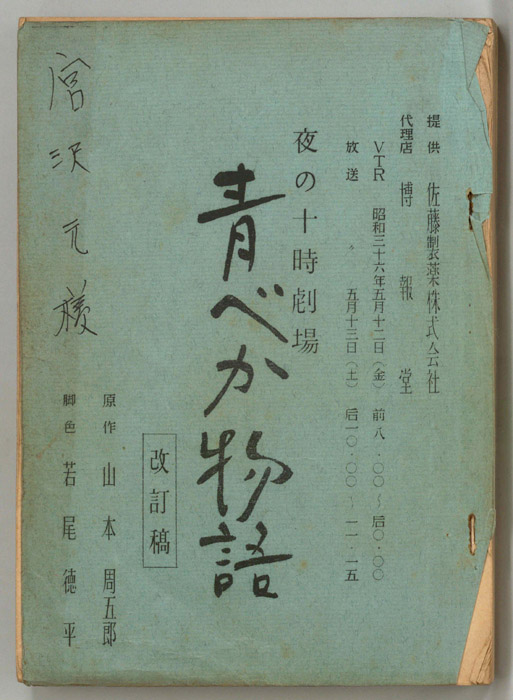 提供 佐藤製薬株式会社
代理店 博報堂
VTR 昭和三十六年五月十二日（金）前八・〇〇～后〇・〇〇
放送 〃 五月十三日（土）后一〇・〇〇～一一・一五
夜の十時劇場
青べか物語
改訂稿
原作 山本周五郎
脚色 若尾徳平
宮沢元様